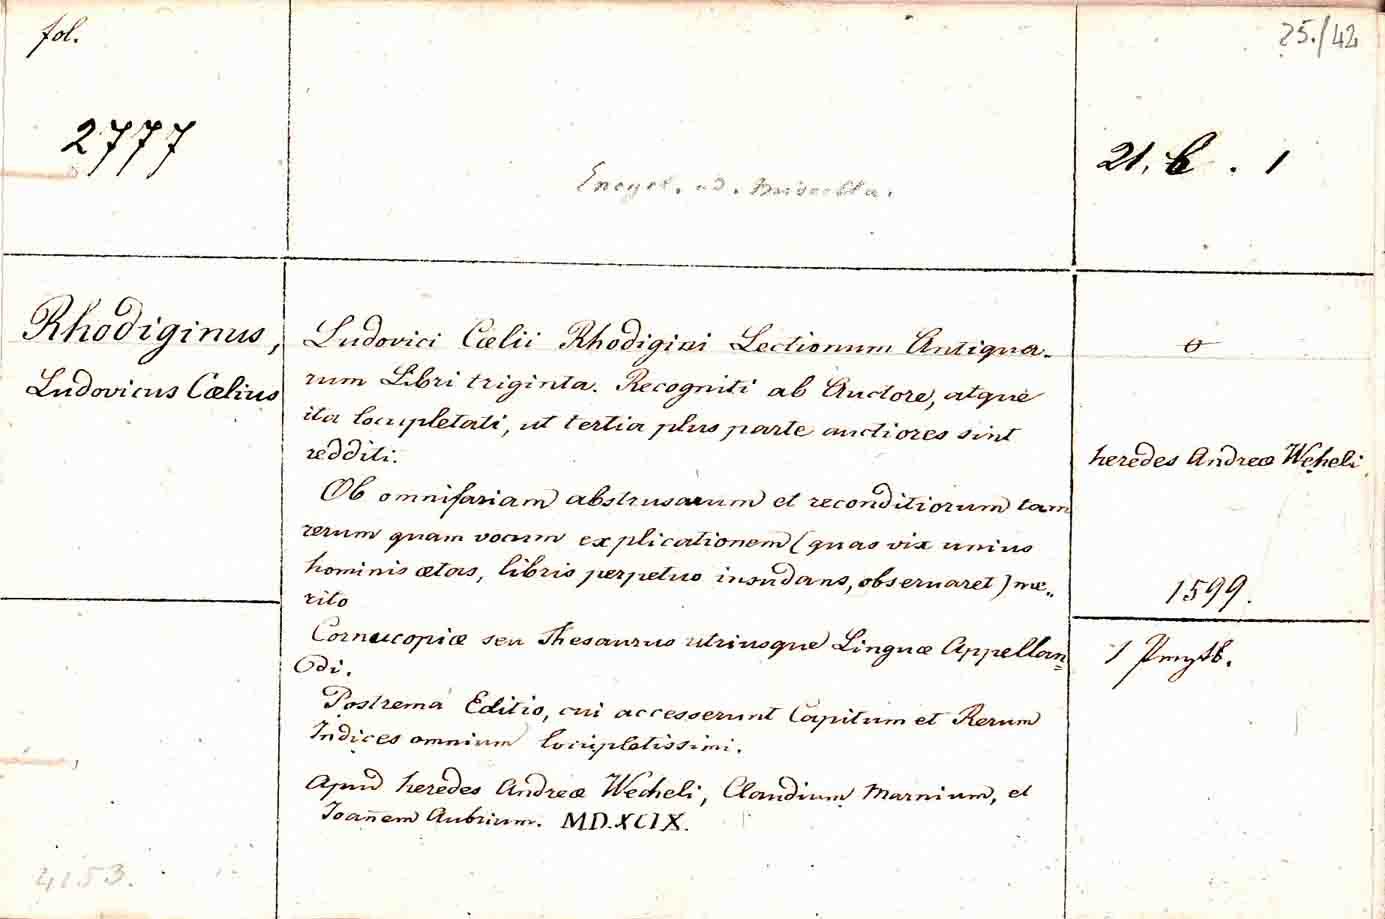 fol.
25./42
2777
21. b. 1
Encycl. ad. Miscella.
Rhodiginus,
Ludovicus Cœlius
Ludovici Cœlii Rhodigini Lectionum Antiqua-
rum Libri triginta. Recogniti ab Auctore, atque
ita locupletati, ut tertia plus parte auctiores sint
redditi.
Ob omnifariam abstrusarum et reconditiorum tam
rerum quam vocum explicationem (quas vix unius
hominis ætas, libris perpetuo insudans, observaret) me-
rito
Cornucopiæ seu Thesaurus utriusque Linguæ Appellan=
di.
Postrema Editio, cui accesserunt Capitum et Rerum
Indices omnium locupletissimi.
Apud heredes Andreæ Wecheli, Claudium Marnium, et
Joañem Aubrium. MD.XCIX.
heredes Andreæ Wecheli
1599.
1
4153.